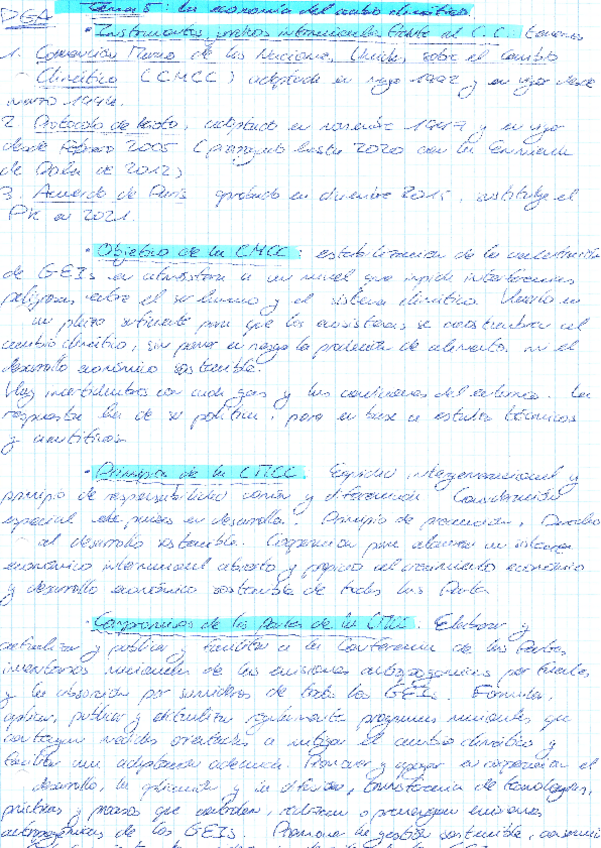 DEA Tema 5: La economía del cambio climático.
• Instrumentos jurídicos internacionales frente al C.C. Tenemos
1. Convención Marco de las Naciones Unidas sobre el Cambio
Climático (CMCC) adoptada en mayo 1992 y en vigor desde
marzo 1994.
2. Protocolo de Kioto, adoptado en 1997 y en vigor
desde Febrero 2005 (prorrogado hasta 2020 con la Enmienda
de Doha de 2012)
3. Acuerdo de París aprobado en diciembre 2015, sustituye el
PK en 2021.
• Objetivo de la CMCC: estabilización de la concentración
de GEIs en atmósfera a un nivel que impida interferencias
peligrosas entre el ser humano y el sistema climático. Hacerlo en
un plazo suficiente para que los ecosistemas se acostumbren al
cambio climático, sin poner en riesgo la producción de alimentos ni el
desarrollo económico sostenible.
Hay incertidumbres con cada gas y las condiciones del entorno. La
respuesta ha de ser política, pero en base a estudios técnicos
y científicos
• Principios de la CMCC. Equidad intergeneracional y
principio de responsabilidad común y diferenciada. Consideración
especial de países en desarrollo. Principio de precaución, Derecho
al desarrollo sostenible. Cooperación para alcanzar un sistema
económico internacional abierto y propicio al crecimiento económico
y desarrollo económico sostenible de todas las Partes
• Compromisos de las Partes de la CMCC: Elaborar y
actualizar y publicar y facilitar a la Conferencia de las Partes
inventarios nacionales de las emisiones antropogénicas por fuentes
y la absorción por sumideros de todos los GEIs. Formular,
aplicar, publicar y actualizar regularmente programas nacionales que
contengan medidas orientadas a mitigar el cambio climático y
facilitar una adaptación adecuada. Promover y apoyar en cooperación el
desarrollo, la aplicación y la difusión, transferencia de tecnologías,
prácticas y procesos que controlen, reduzcan o prevengan emisiones
antropogénicas de los GEIs. Promover la gestión sostenible,